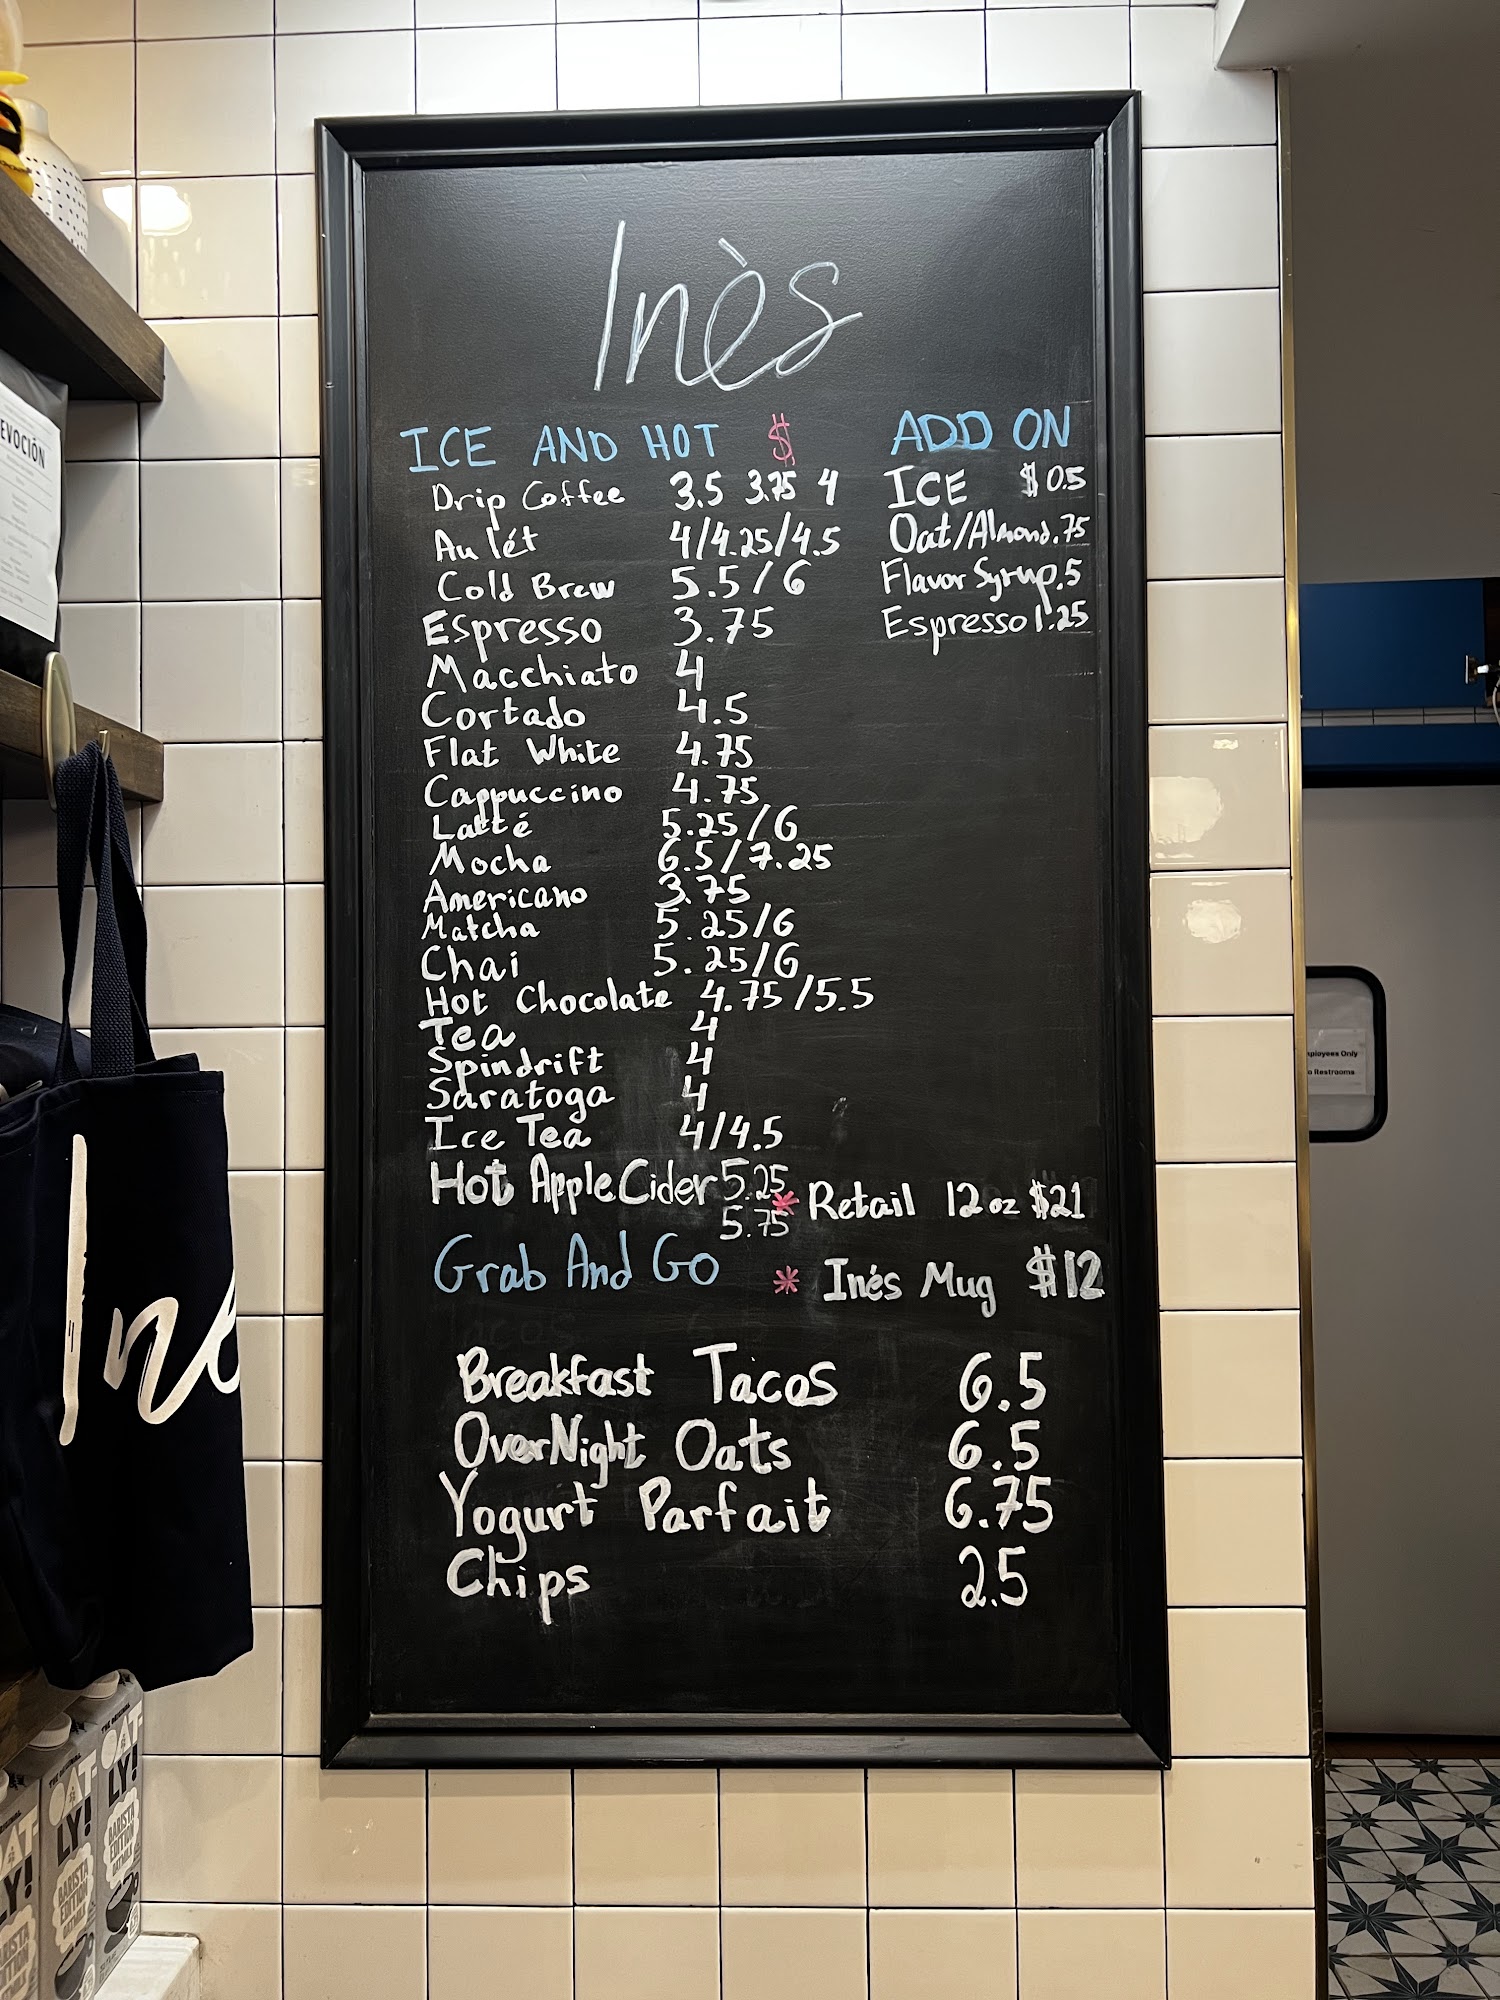 Inès
ICE AND HOT $
Drip Coffee 3.5 3.75 4
Au lét 4/4.25/4.5
Cold Brew 5.5/6
Espresso 3.75
Macchiato 4
Cortado 4.5
Flat White 4.75
Cappuccino 4.75
Latté 5.25/6
Mocha 6.5/7.25
Americano 3.75
Matcha 5.25/6
Chai 5.25/6
Hot Chocolate 4.75/5.5
Tea 4
Spindrift 4
Saratoga 4
Ice Tea 4/4.5
Hot Apple Cider 5.25
5.75
ADD ON
ICE $0.5
Oat/Almond .75
Flavor Syrup .5
Espresso 1.25
* Retail 12oz $21
* Inés Mug $12
Grab And Go
Breakfast Tacos 6.5
OverNight Oats 6.5
Yogurt Parfait 6.75
Chips 2.5
EVOCIÓN
Inè
mployees Only
o Restrooms
THE ORIGINAL
OAT-
LY!
BARISTA
EDITION
OATMILK
THE ORIGINAL
OAT-
LY!
BARISTA
EDITION